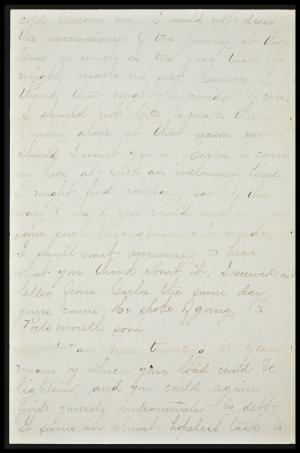 cold tiresome one. I would not dread
the inconvenience of the journey at the
time so much as the fear that it
might make me sick. However, I
think that might be avoided by care.
I should not like to make the
journey alone at that season nor
should I want you or Carla to come
on here at such an inclement time
I might find company part of the
way, & one of you could meet me or
some such arrangement be made.
I shall wait anxiously to hear
what you think about it. I received a
letter from Carla the same day
yours came, he spoke of going to
Portsmouth soon.
I am thinking of some
means by which your load could be
lightened and you could again
find yourself unincumbered by debt.
It seems an almost hopeless task to